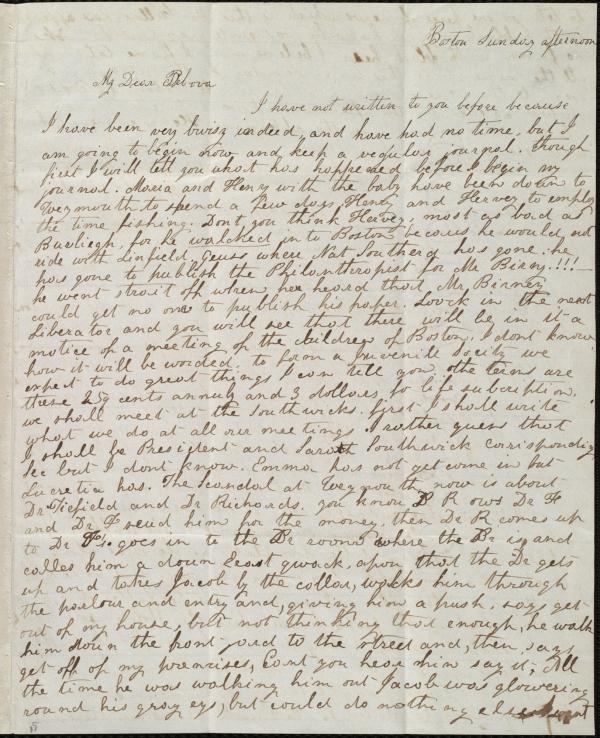 Boston Sunday afternoon
My Dear Debora
I have not written to you before because
I have been very buisy indeed, and have had no time, but I
am going to begin now and keep a regular journal. Though
first I will tell you what has happened before I begin my
journal. Maria and Henry with the baby have been down to
Weymouth to spend a few days, Henry and Hervey to employ
the time fishing. Dont you think Hervey, most as bad as
Burliegh, for he walked in to Boston becaus he would not
ride with Linfield. Geuss where Nat Southerd has gone. he
has gone to publish the Philanthropist for Mr Birny.!!!
he went strait off when he heard that Mr Birney
could get no one to publish his paper. Loock in the next
Liberator and you will see that there will be in it a
notice of a meeting of the children of Boston, I dont know
how it will be worded, to form a Juvenile Socity we
expect to do great things I can tell you. the terms are
these 25 cents annuly and 3 dollars fo life subcription,
we shall meet at the Southwicks. first I shall write
what we do at all our meetings. I rather guess that
I shall be President and Sarah Southwick corrisponding
Sec but I dont know. Emma has not get come in but
Lucretia has. The scandal at Weymouth now is about
Dr Fiefield and Dr Richards. you know D R ows Dr F
and Dr F send him for the money, then Dr R comes up
to Dr F's. goes in to the Br room where the Dr is and
calles him a down East qwack, apon that the Dr gets
up and takes Jacob by the collar, walcks him through
the parlour and entry and, giving him a push, says get
out of my house, but not thinking that enough, he walk
him down the front yard to the street and, then, says
get off of my premises, Cant you hear him say it; All
the time he was walking him out Jacob was glowering
round his gray eyes, but could do nothing else